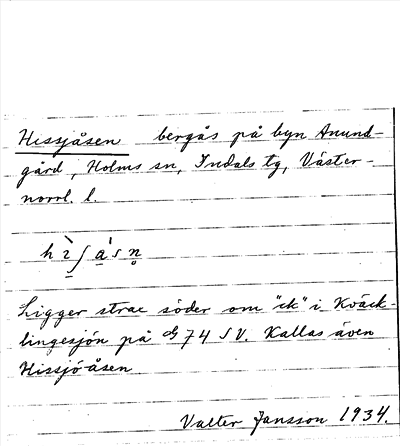 Hissjåsen bergås på byn Anund-
gård, Holms sn, Indals tg, Väster-
norrl. l.
Ligger strax söder om "ck" i Kväck-
lingesjön på 74 SV. Kallas även
Hissjö-åsen
Valter Jansson 1934.